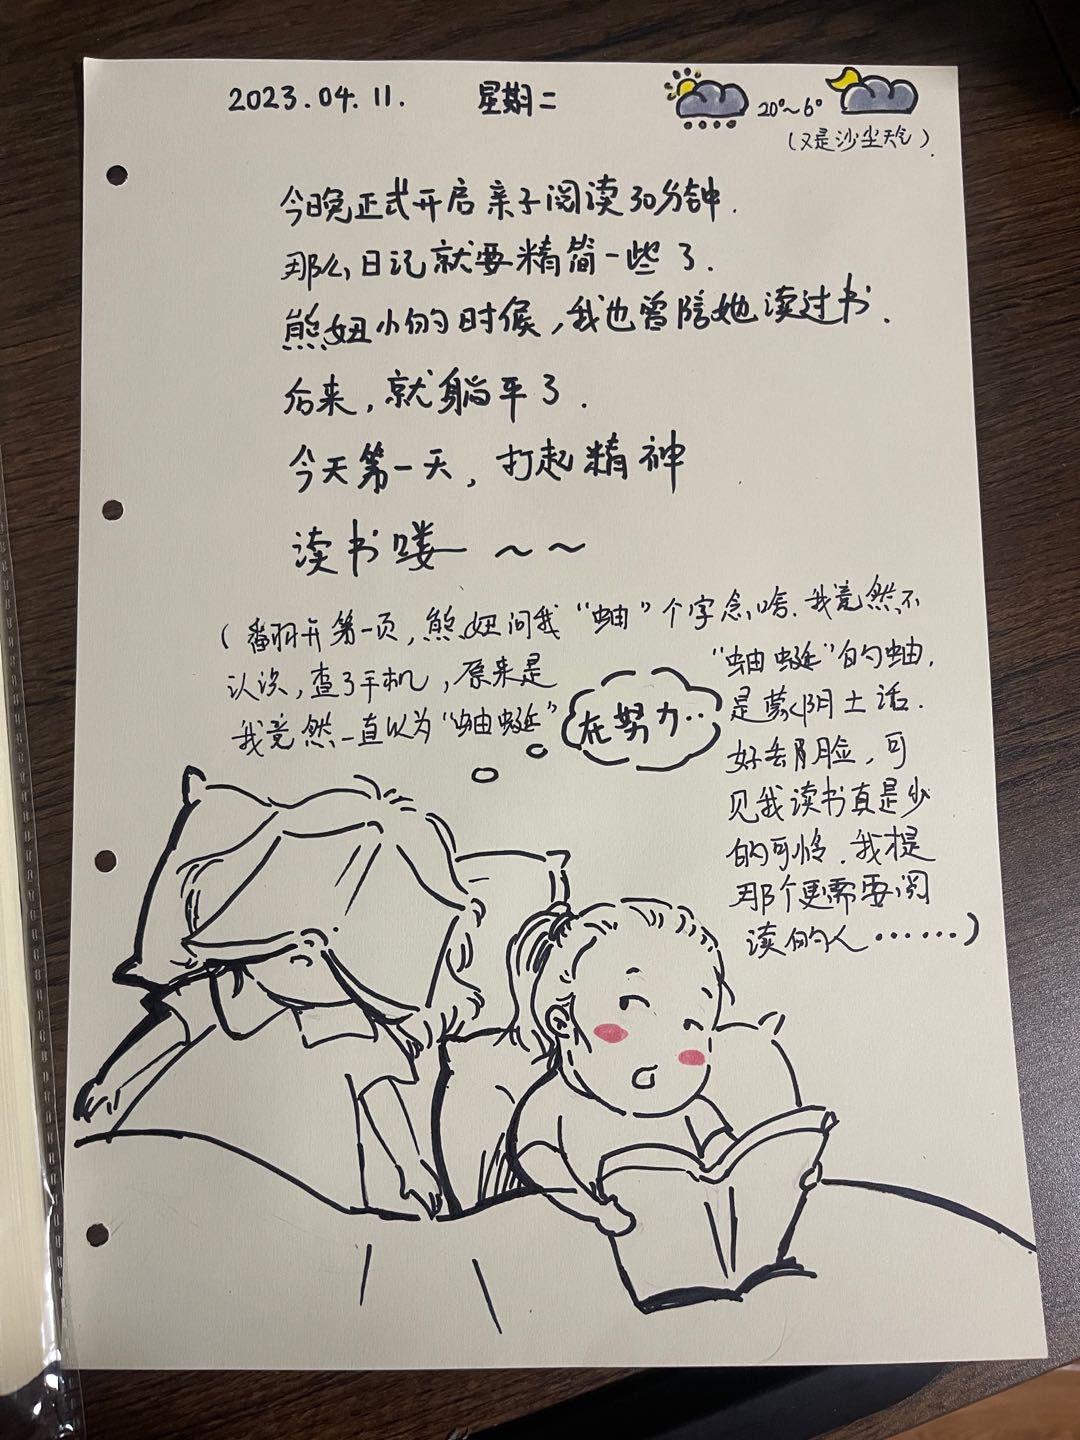 2023.04.11. 星期二
20°~6°
(又是沙尘天气).
今晚正式开启亲子阅读30分钟.
那么日记就要精简一些了.
熊妞小的时候,我也曾陪她读过书.
后来,就躺平了.
今天第一天,打起精神
读书喽~~
(翻开第一页,熊妞问我"蚰"个字念啥.我竟然不
认识,查了手机,原来是"蚰蜒"的蚰,
我竟然一直以为"蚰蜒"是蒙阴土话.
好丢脸,可
见我读书真是少
的可怜.我想
那个更需要阅
读的人……)
在努力..